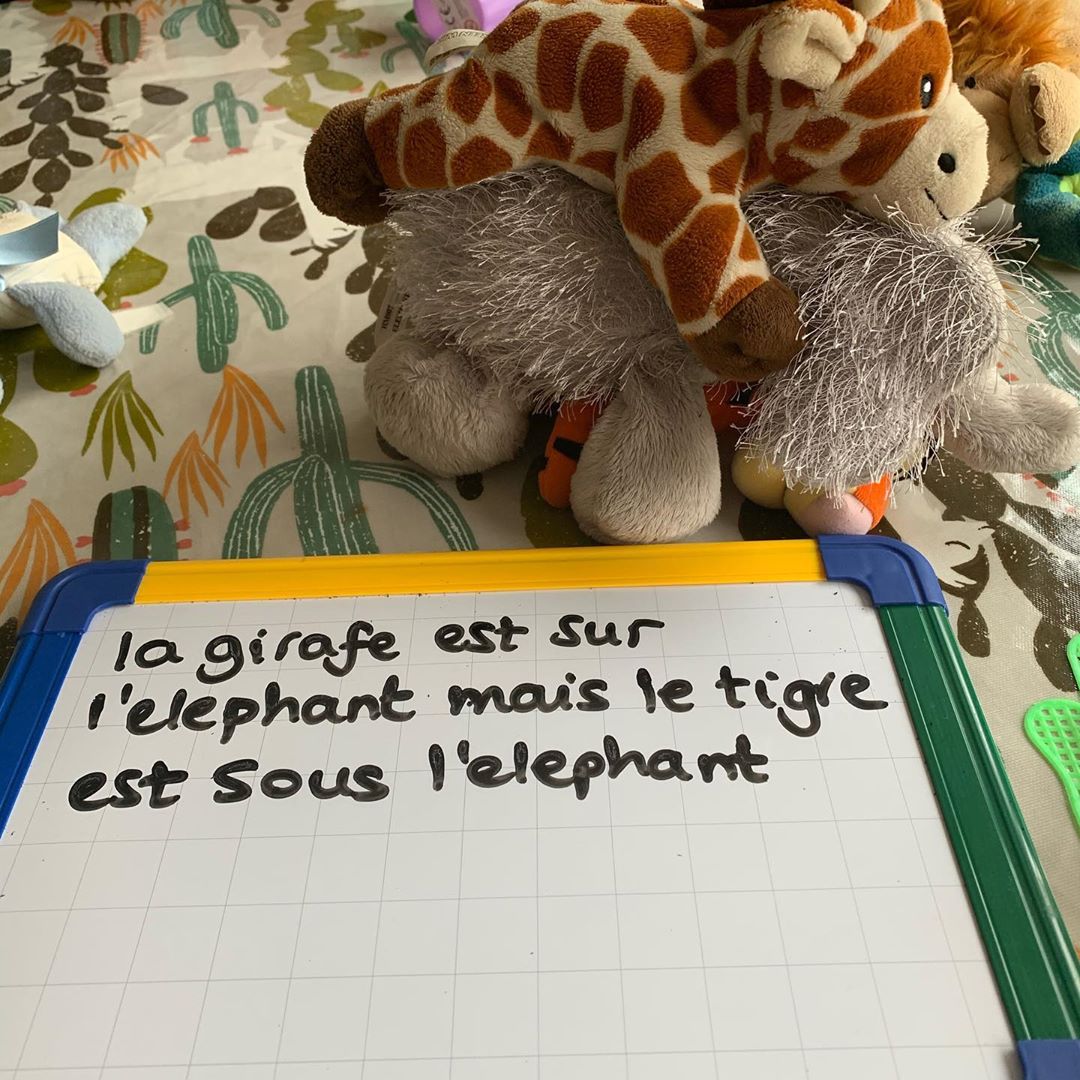 la girafe est sur
l'elephant mais le tigre
est sous l'elephant